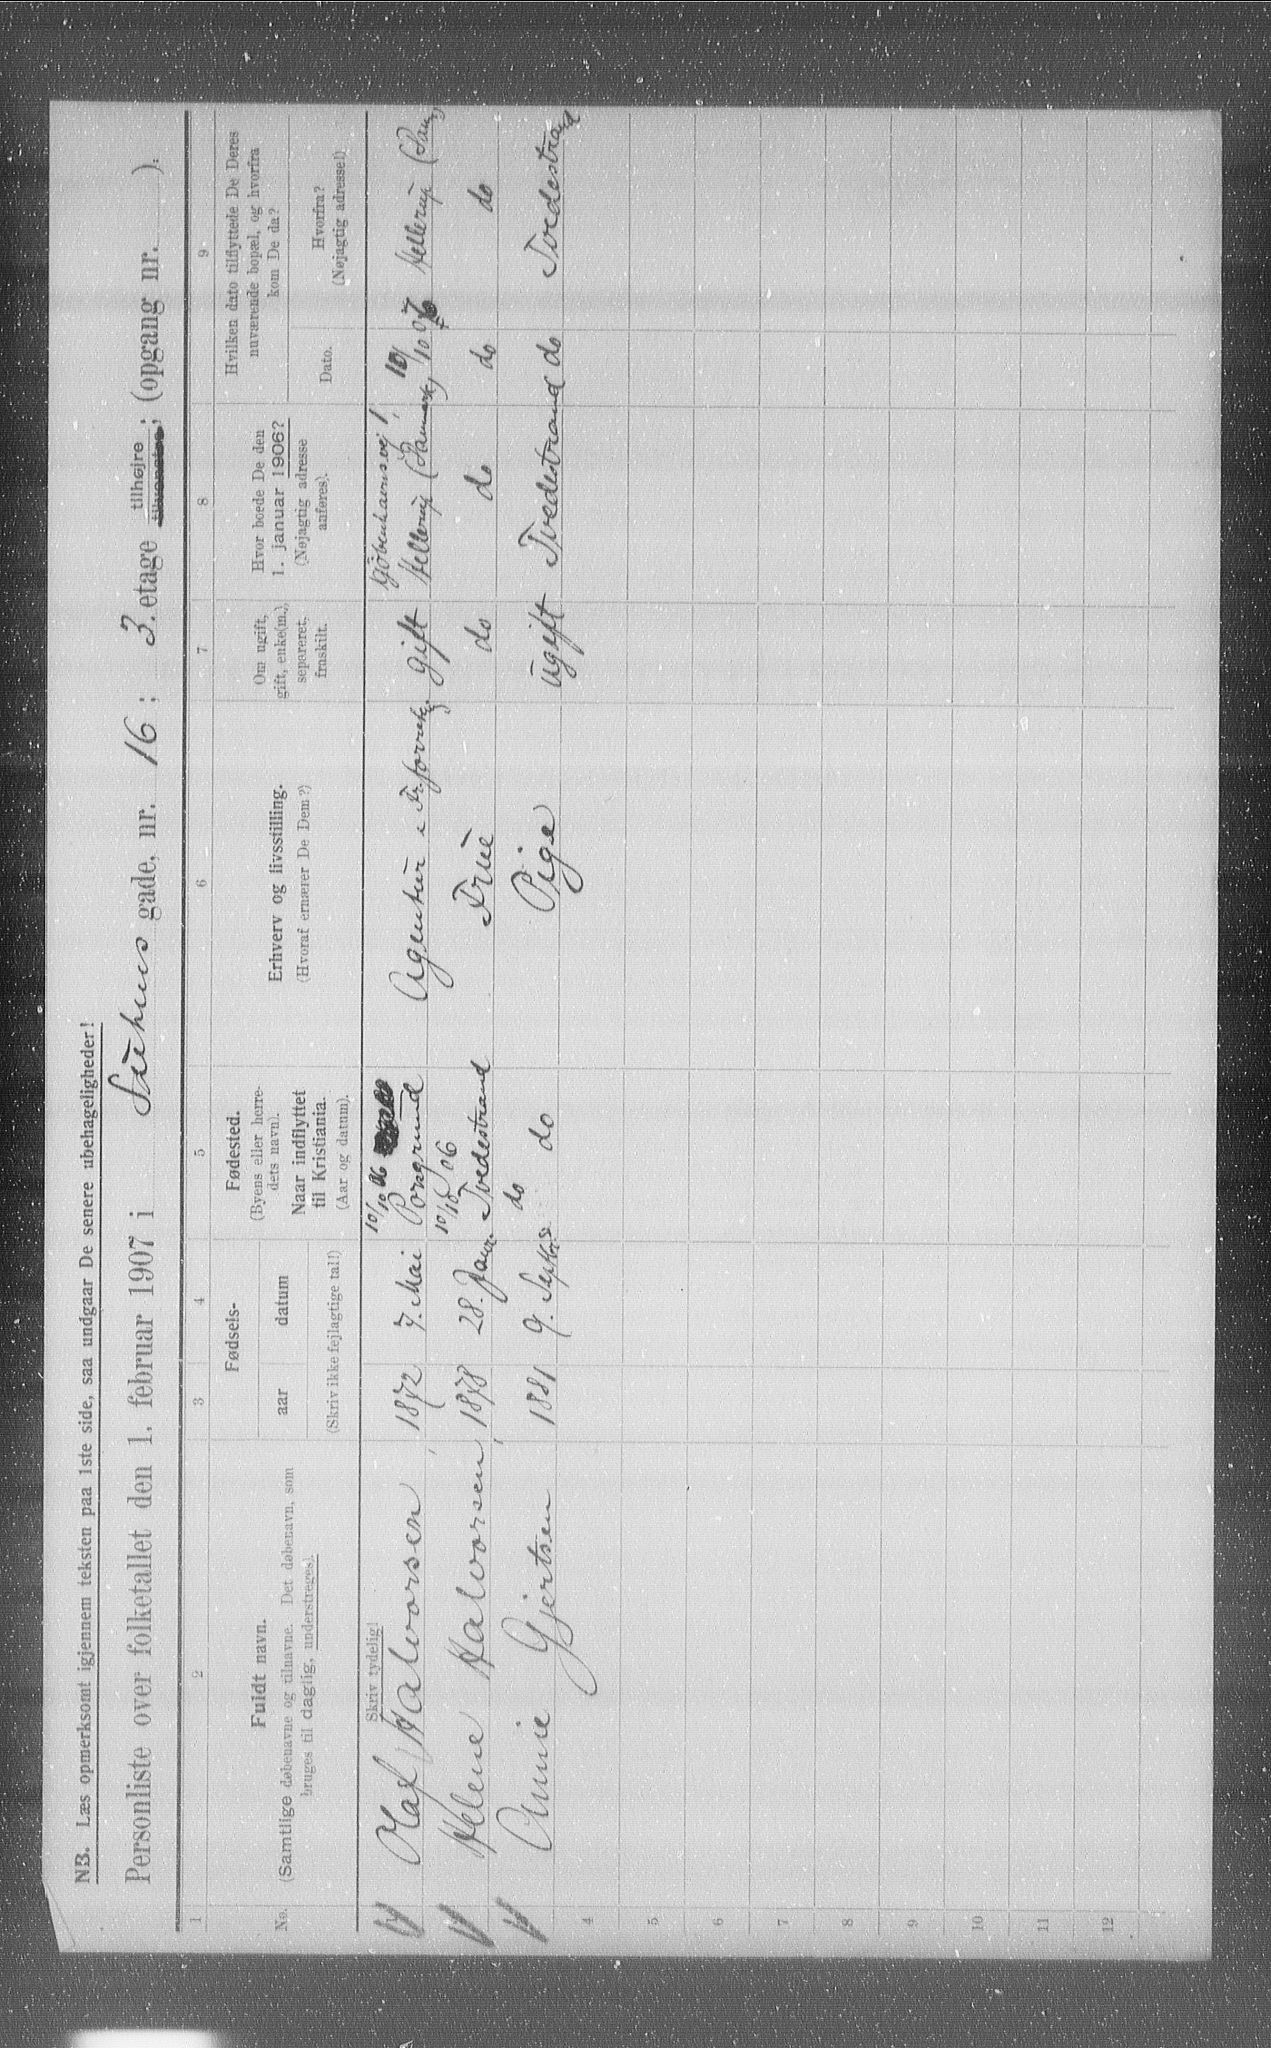 NB. Læs opmerksomt igjennem teksten paa 1ste side, saa undgaar De senere ubehageligheder!
Personliste over folketallet den 1. februar 1907 i Stenhus gade, nr. 16; 3. etage tilhøjre; tilvenstre; (opgang nr. ).
1 2 3 4 5 6 7 8 9
No.
Fuldt navn.
(Samtlige døbenavne og tilnavne. Det døbenavn, som
bruges til daglig, understreges).
Skriv tydelig!
Fødsels-
aar datum
(Skriv ikke fejlagtige tal!)
Fødested.
(Byens eller herre-
dets navn).
Naar indflyttet
til Kristiania.
(Aar og datum).
Erhverv og livsstilling.
(Hvoraf ernærer De Dem?)
Om ugift,
gift, enke(m.),
separeret,
fraskilt.
Hvor boede De den
1. januar 1906?
(Nøjagtig adresse
anføres).
Hvilken dato tilflyttede De Deres
nuværende bopæl, og hvorfra
kom De da?
Dato.
Hvorfra?
(Nøjagtig adresse!)
10/10 06 Kjøbenhavnsvej 1,
Olaf Halvorsen 1872 7. Mai Porsgrund Agentur gift Hellerup (Danmark) 10/10 06 Hellerup (Danm
10/10 06
Helene Halvorsen 1878 28. Janr. Tvedestrand Frue do do do do
do
Annie Gjertsen 1881 9. Septbr. do Pige ugift Tvedestrand do Tvedestrand
4
5
6
7
8
9
10
11
12